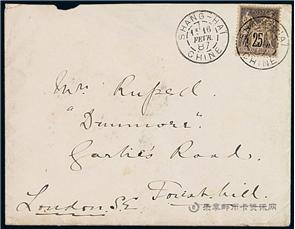 SHANG-HAI
16
FEVR.
87
CHINE
25
SHANG-HAI
CHINE
Mrs Rufed.
"Dunmore".
Garlie's Road.
Forest hill.
London. S.E